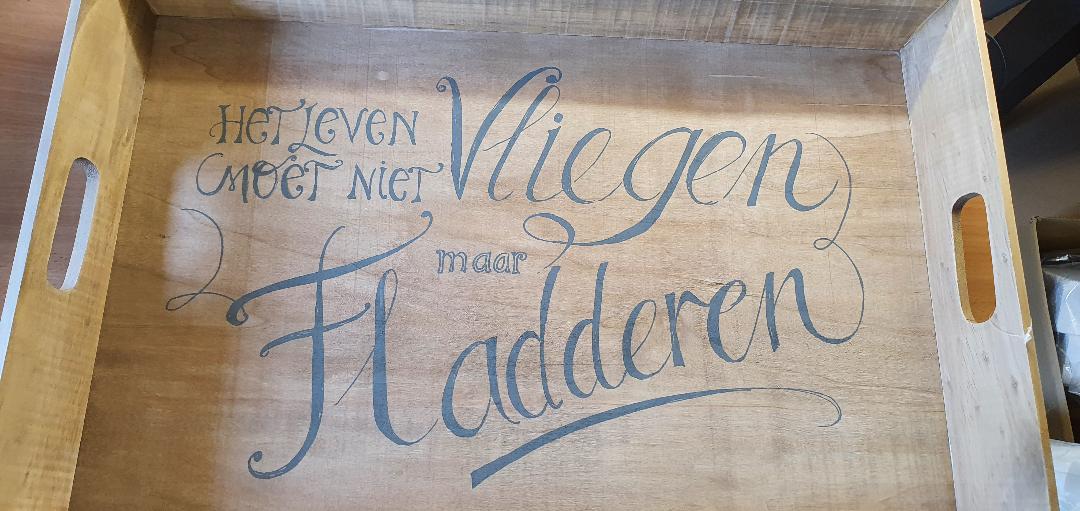 HET LEVEN
MOET NIET Vliegen
maar
Fladderen